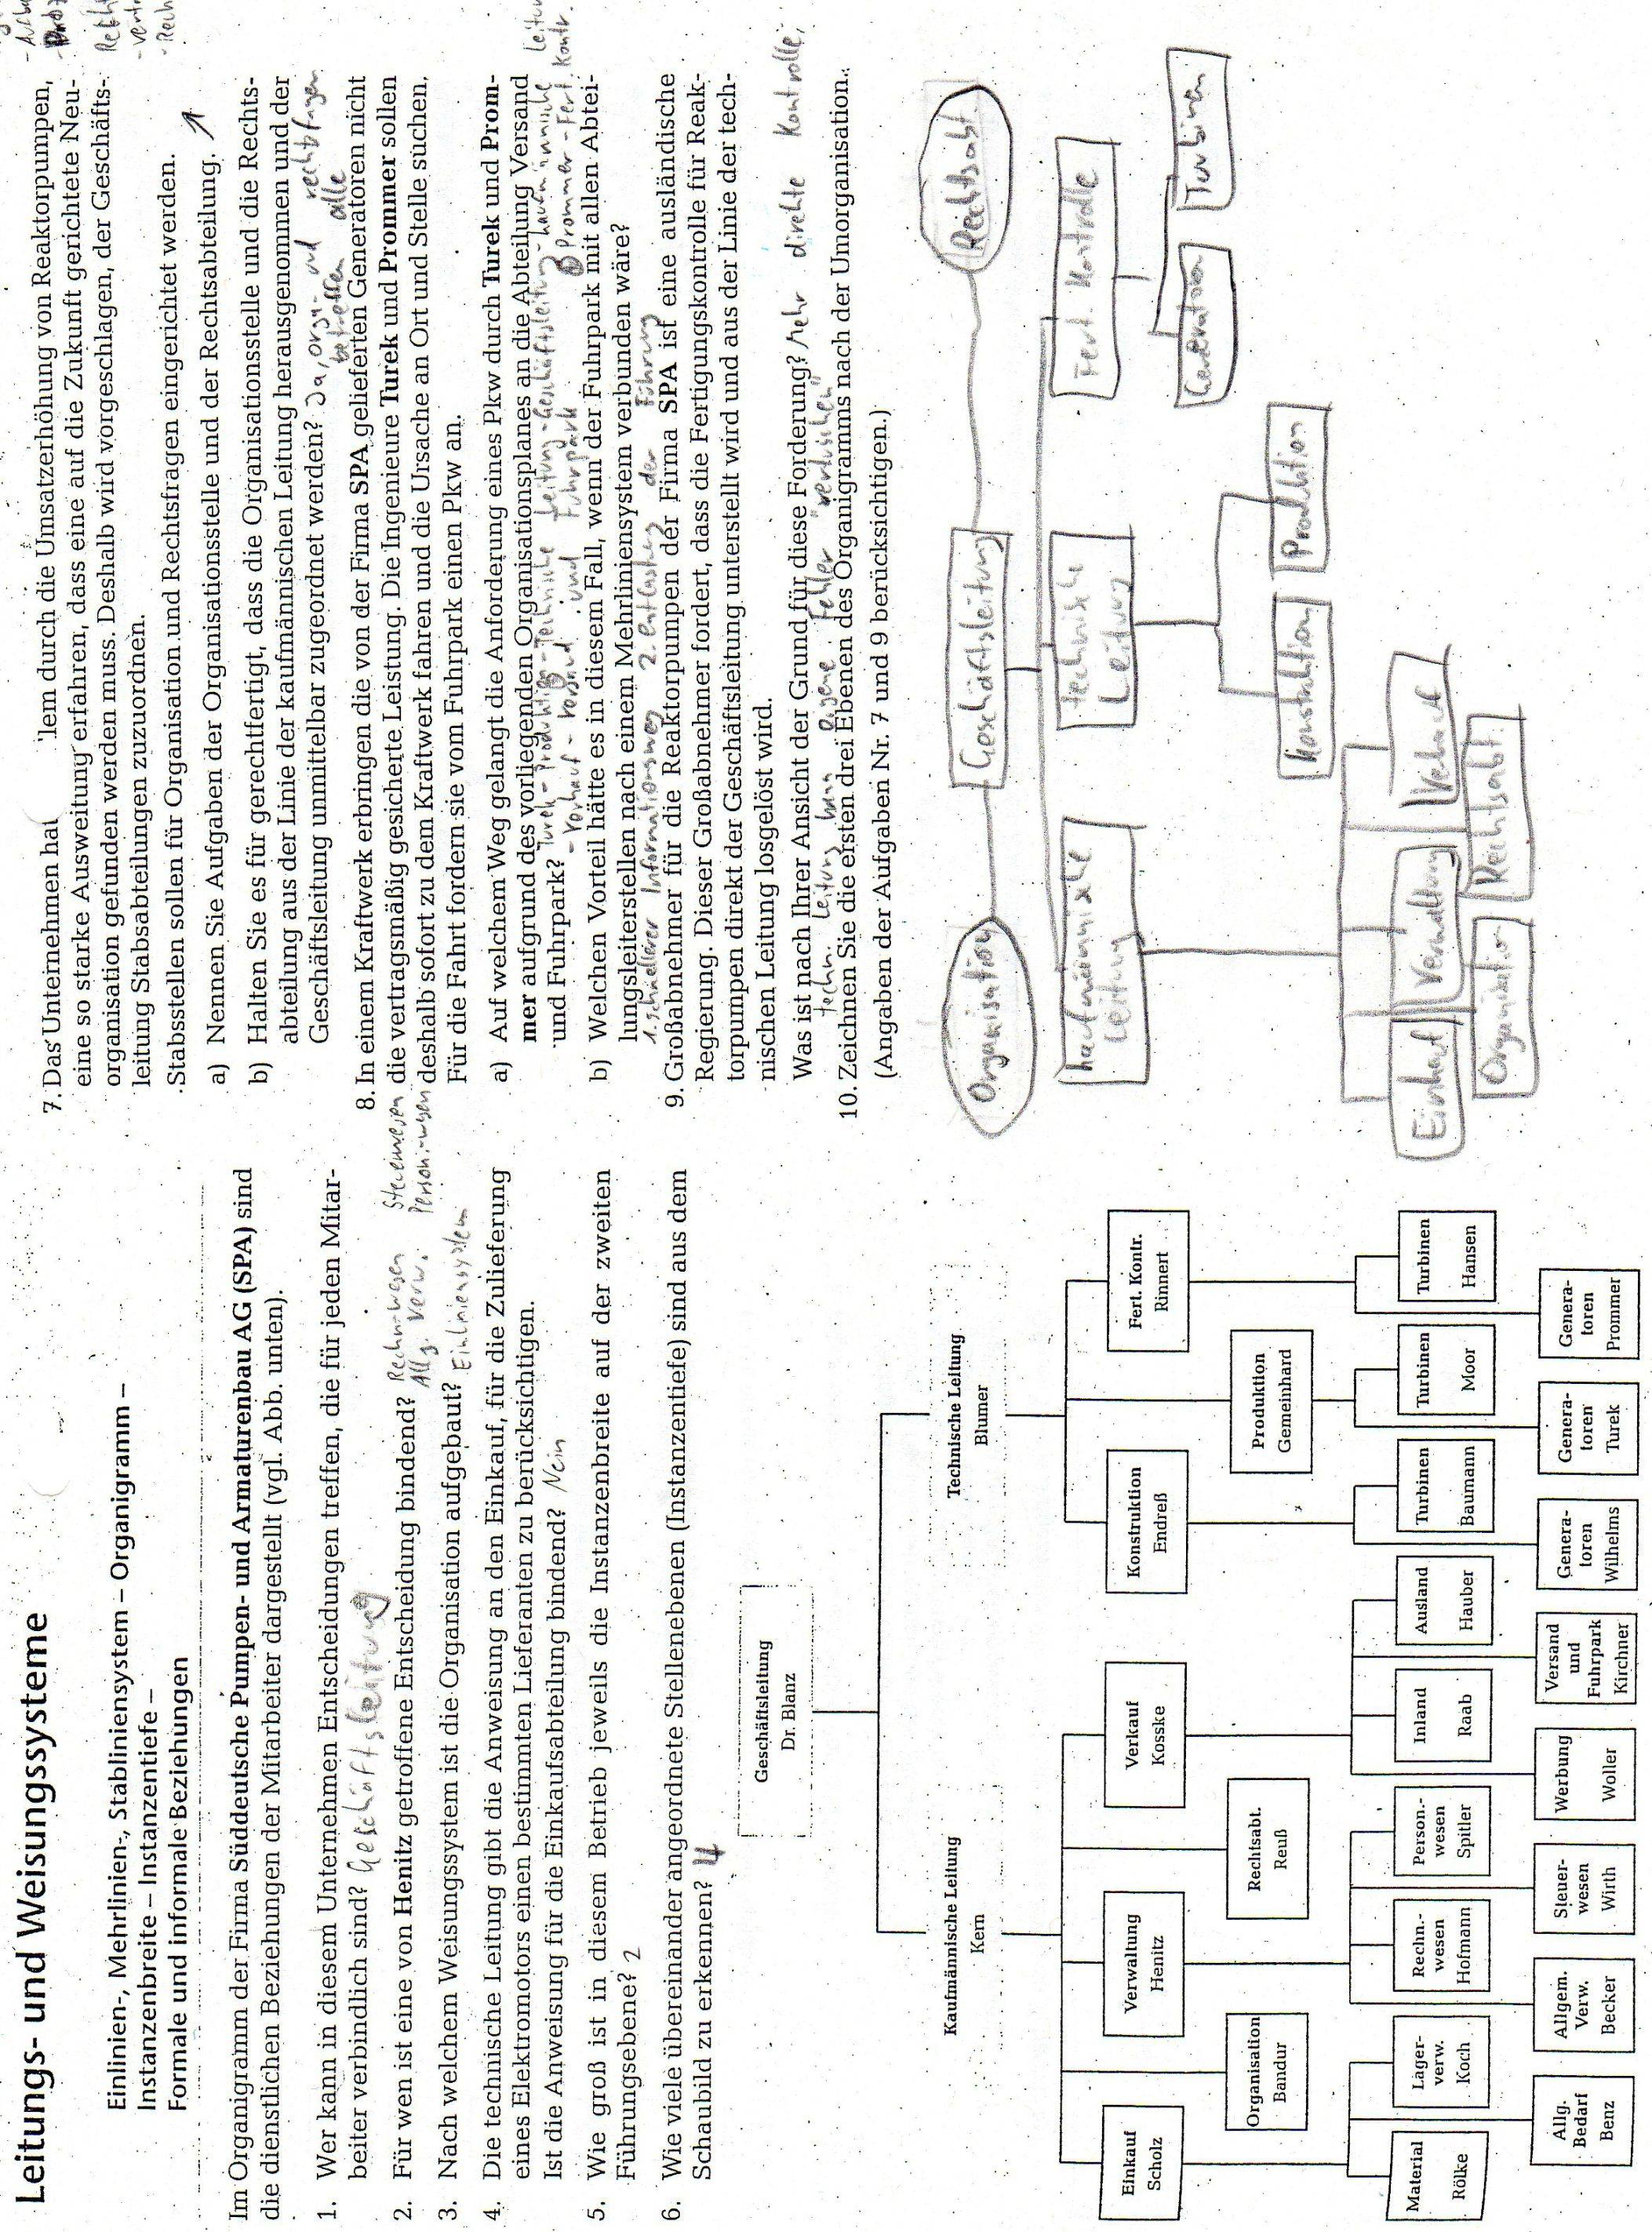 Leitungs- und Weisungssysteme
Einlinien-, Mehrlinien-, Stabliniensystem – Organigramm –
Instanzenbreite – Instanzentiefe –
Formale und informale Beziehungen
Im Organigramm der Firma Süddeutsche Pumpen- und Armaturenbau AG (SPA) sind
die dienstlichen Beziehungen der Mitarbeiter dargestellt (vgl. Abb. unten).
1. Wer kann in diesem Unternehmen Entscheidungen treffen, die für jeden Mitar-
beiter verbindlich sind? Geschäftsleitung
2. Für wen ist eine von Henitz getroffene Entscheidung bindend? Rechn-wesen Steuerwesen
Allg. Verw. Person.-wesen
3. Nach welchem Weisungssystem ist die Organisation aufgebaut? Einliniensystem
4. Die technische Leitung gibt die Anweisung an den Einkauf, für die Zulieferung
eines Elektromotors einen bestimmten Lieferanten zu berücksichtigen.
Ist die Anweisung für die Einkaufsabteilung bindend? Nein
5. Wie groß ist in diesem Betrieb jeweils die Instanzenbreite auf der zweiten
Führungsebene? 2
6. Wie viele übereinander angeordnete Stellenebenen (Instanzentiefe) sind aus dem
Schaubild zu erkennen? 4
Geschäftsleitung
Dr. Blanz
Kaufmännische Leitung
Kern
Technische Leitung
Blumer
Einkauf
Scholz
Verwaltung
Henitz
Verkauf
Koske
Konstruktion
Endreß
Fert. Kontr.
Rinnert
Organisation
Bandur
Rechtsabt.
Reuß
Produktion
Gemeinhard
Material
Rölke
Lager-
verw.
Koch
Rechn.-
wesen
Hofmann
Person.-
wesen
Spitler
Inland
Raab
Ausland
Hauber
Turbinen
Baumann
Turbinen
Moor
Turbinen
Hansen
Allg.
Bedarf
Benz
Allgem.
Verw.
Becker
Steuer-
wesen
Wirth
Werbung
Woller
Versand
und
Fuhrpark
Kirchner
Genera-
toren
Wilhelms
Genera-
toren
Turek
Genera-
toren
Prommer
7. Das Unternehmen hat lem durch die Umsatzerhöhung von Reaktorpumpen,
eine so starke Ausweitung erfahren, dass eine auf die Zukunft gerichtete Neu-
organisation gefunden werden muss. Deshalb wird vorgeschlagen, der Geschäfts-
leitung Stabsabteilungen zuzuordnen.
Stabsstellen sollen für Organisation und Rechtsfragen eingerichtet werden.
a) Nennen Sie Aufgaben der Organisationsstelle und der Rechtsabteilung.
b) Halten Sie es für gerechtfertigt, dass die Organisationsstelle und die Rechts-
abteilung aus der Linie der kaufmännischen Leitung herausgenommen und der
Geschäftsleitung unmittelbar zugeordnet werden? Ja, orga und rechtsfragen
betreffen alle
8. In einem Kraftwerk erbringen die von der Firma SPA gelieferten Generatoren nicht
die vertragsmäßig gesicherte Leistung. Die Ingenieure Turek und Prommer sollen
deshalb sofort zu dem Kraftwerk fahren und die Ursache an Ort und Stelle suchen.
Für die Fahrt fordern sie vom Fuhrpark einen Pkw an.
a) Auf welchem Weg gelangt die Anforderung eines Pkw durch Turek und Prom-
mer aufgrund des vorliegenden Organisationsplanes an die Abteilung Versand
und Fuhrpark? Turek - Produktion - Technische Leitung - Geschäftsleitung - kaufmännische Leitung
- Verkauf - Versand und Fuhrpark Prommer - Fert. Kontr.
b) Welchen Vorteil hätte es in diesem Fall, wenn der Fuhrpark mit allen Abtei-
lungsleiterstellen nach einem Mehrliniensystem verbunden wäre?
1. schnellerer Informationsweg 2. Entlastung der Führung
9. Großabnehmer für die Reaktorpumpen der Firma SPA ist eine ausländische
Regierung. Dieser Großabnehmer fordert, dass die Fertigungskontrolle für Reak-
torpumpen direkt der Geschäftsleitung unterstellt wird und aus der Linie der tech-
nischen Leitung losgelöst wird.
Was ist nach Ihrer Ansicht der Grund für diese Forderung? Mehr direkte Kontrolle,
techn. Leitung kann eigene Fehler "vertuschen"
10. Zeichnen Sie die ersten drei Ebenen des Organigramms nach der Umorganisation.
(Angaben der Aufgaben Nr. 7 und 9 berücksichtigen.)
Organisation
Geschäftsleitung
Rechtsabt
kaufmännische
Leitung
technische
Leitung
Fert. Kontrolle
Generatoren
Turbinen
Konstruktion
Produktion
Einkauf
Verwaltung
Verkauf
Organisation
Rechtsabt.